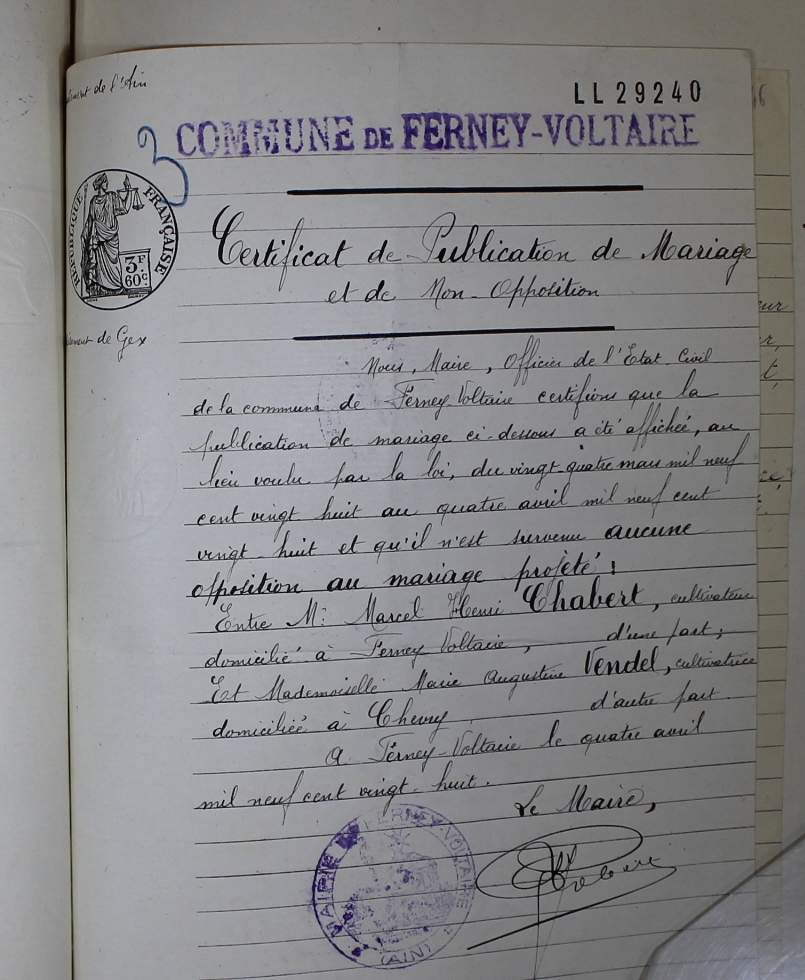 tement de l'Ain
LL 29240
3
COMMUNE DE FERNEY-VOLTAIRE
RÉPUBLIQUE FRANÇAISE
3F
60c
Certificat de Publication de Mariage
et de Non-Opposition
de Gex
Nous, Maire, Officier de l'Etat Civil
de la commune de Ferney-Voltaire certifions que la
publication de mariage ci-dessous a été affichée, au
lieu voulu par la loi, du vingt-quatre mars mil neuf
cent vingt huit au quatre avril mil neuf cent
vingt-huit et qu'il n'est survenu aucune
opposition au mariage projeté:
Entre Mr Marcel Henri Chabert, cultivateur
domicilié à Ferney Voltaire, d'une part;
Et Mademoiselle Marie Augustine Vendel, cultivatrice
domiciliée à Chevry, d'autre part.
A Ferney-Voltaire le quatre avril
mil neuf cent vingt-huit.
Le Maire,
MAIRIE DE FERNEY-VOLTAIRE
(AIN)